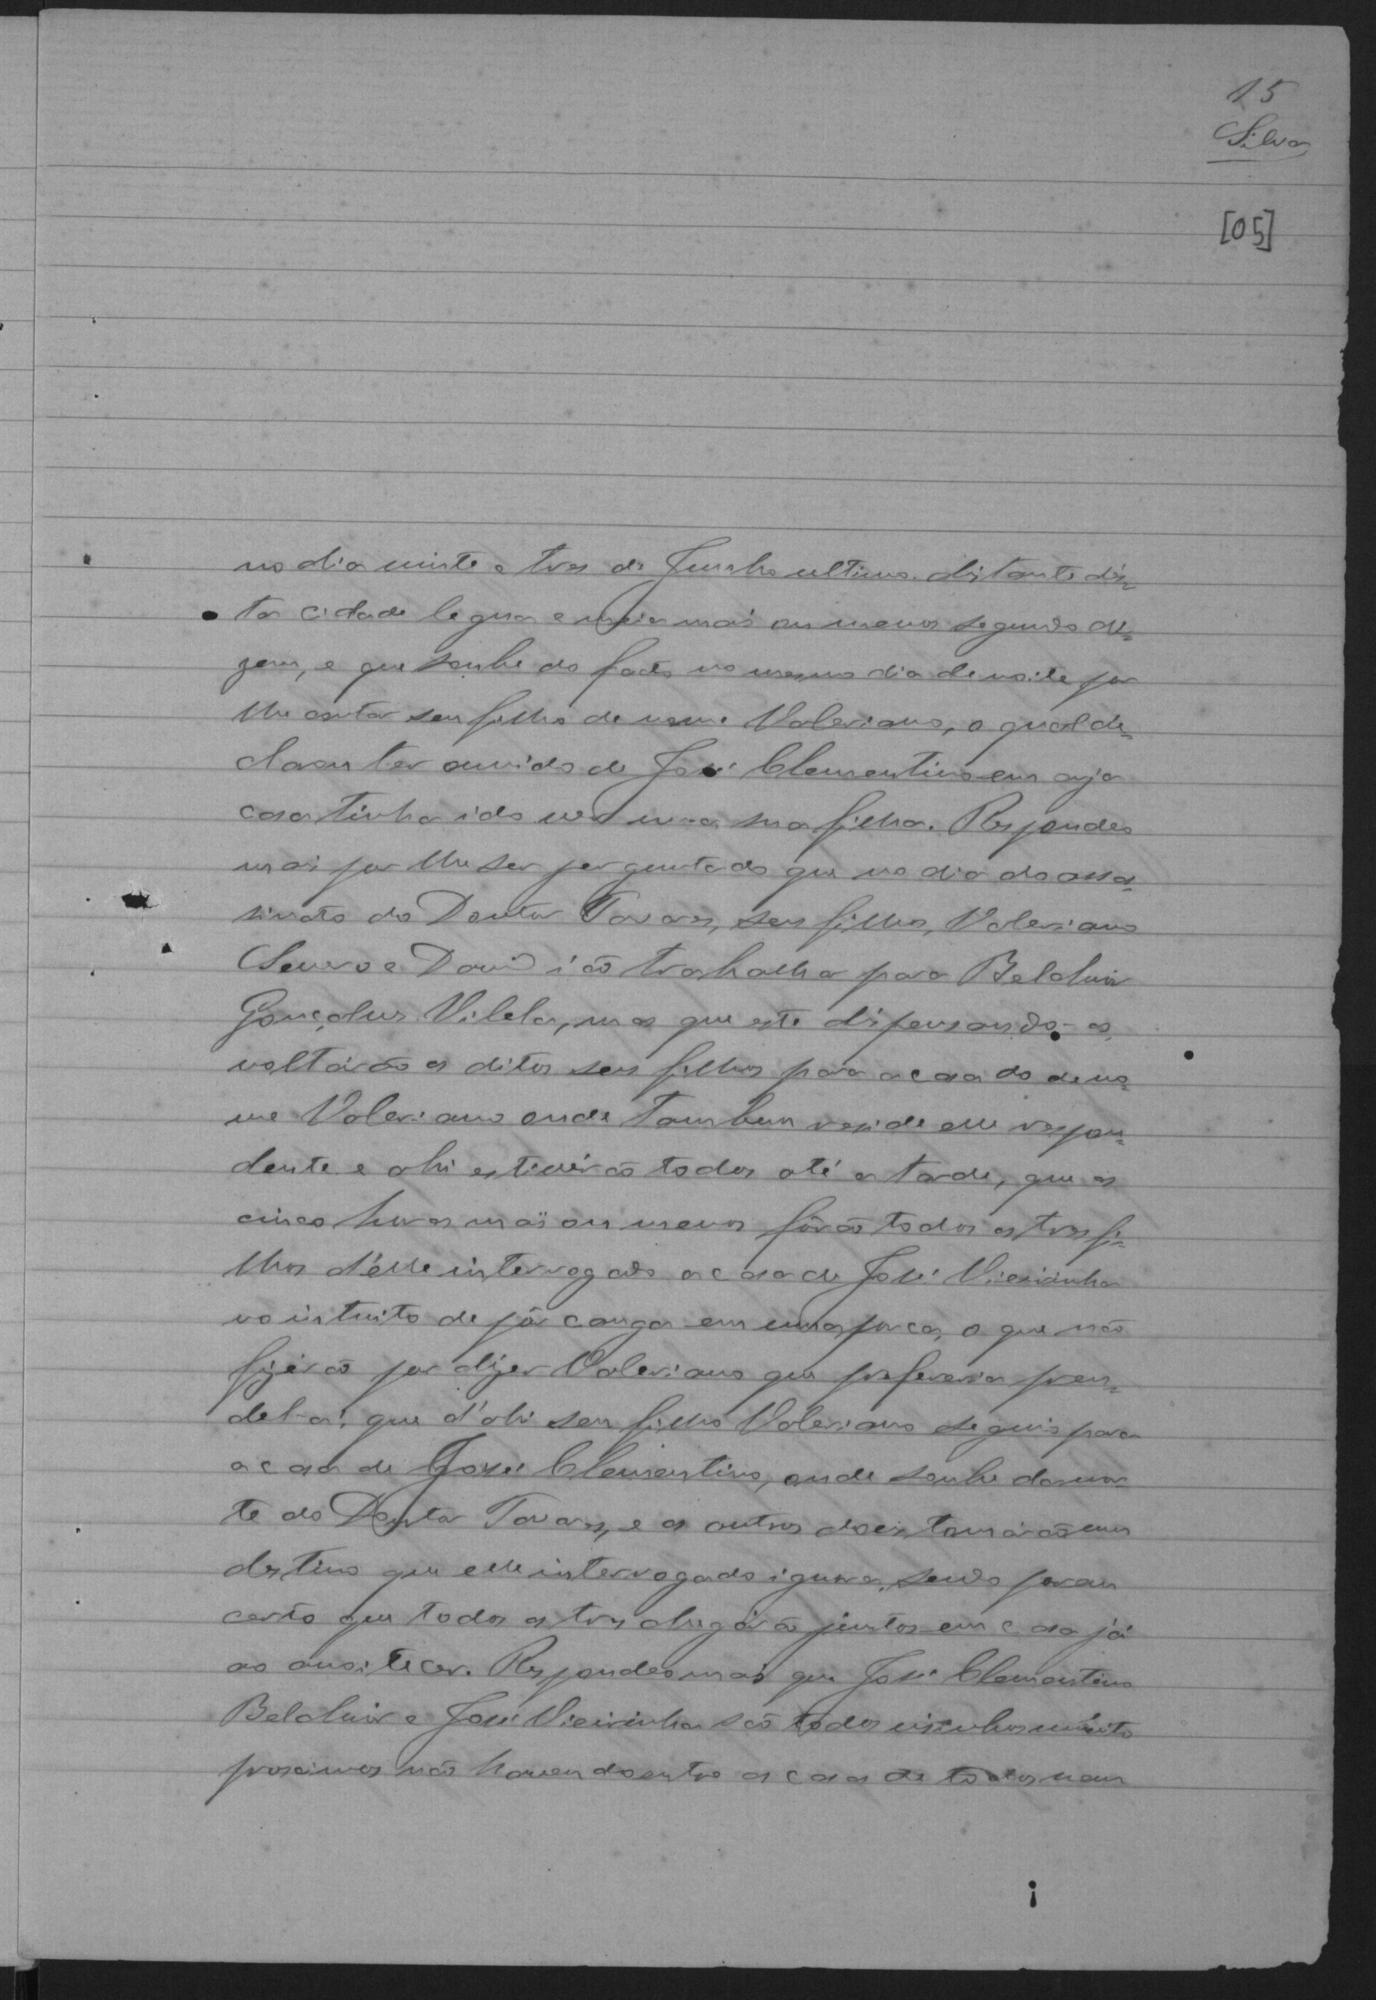 15
Silva
[05]
no dia vinte e tres de Junho ultimo, distante dés-
ta cidade legua e meia mais ou menos segundo di-
zem, e que soube do facto no mesmo dia de noite por
lhe contar seu filho de nome Valeriano, o qual de-
clarou ter ouvido de José Clementino em cuja
casa tinha ido ver uma sua filha. Respondeo
mais por lhe ser perguntado que no dia do assa-
sinato do Doutor Tavares, seus filhos, Valeriano
Severo e David ião trabalhar para Belchior
Gonçalves Vilela, mas que este dispensando-os,
voltárão os ditos seus filhos para a casa do de no-
me Valeriano onde tambem reside elle respon-
dente e ahi estivérão todos até a tarde, que as
cinco horas mais ou menos fôrão todos os tres fi-
lhos d'elle interrogado a casa de José Vieirinha
no intuito de pôr canga em uma porca, o que não
fizérão por dizer Valeriano que preferia pren-
del-a; que d'ahi seu filho Valeriano seguio para
a casa de José Clementino, onde soube da mor-
te do Doutor Tavares, e os outros dois tomárão um
destino que elle interrogado ignora, sendo porem
certo que todos os tres chegárão juntos em casa já
ao anoitecer. Respondeo mais que José Clementino
Belchior e José Vieirinha são todos visinhos muito
proximos não havendo entre as casas de todos nem